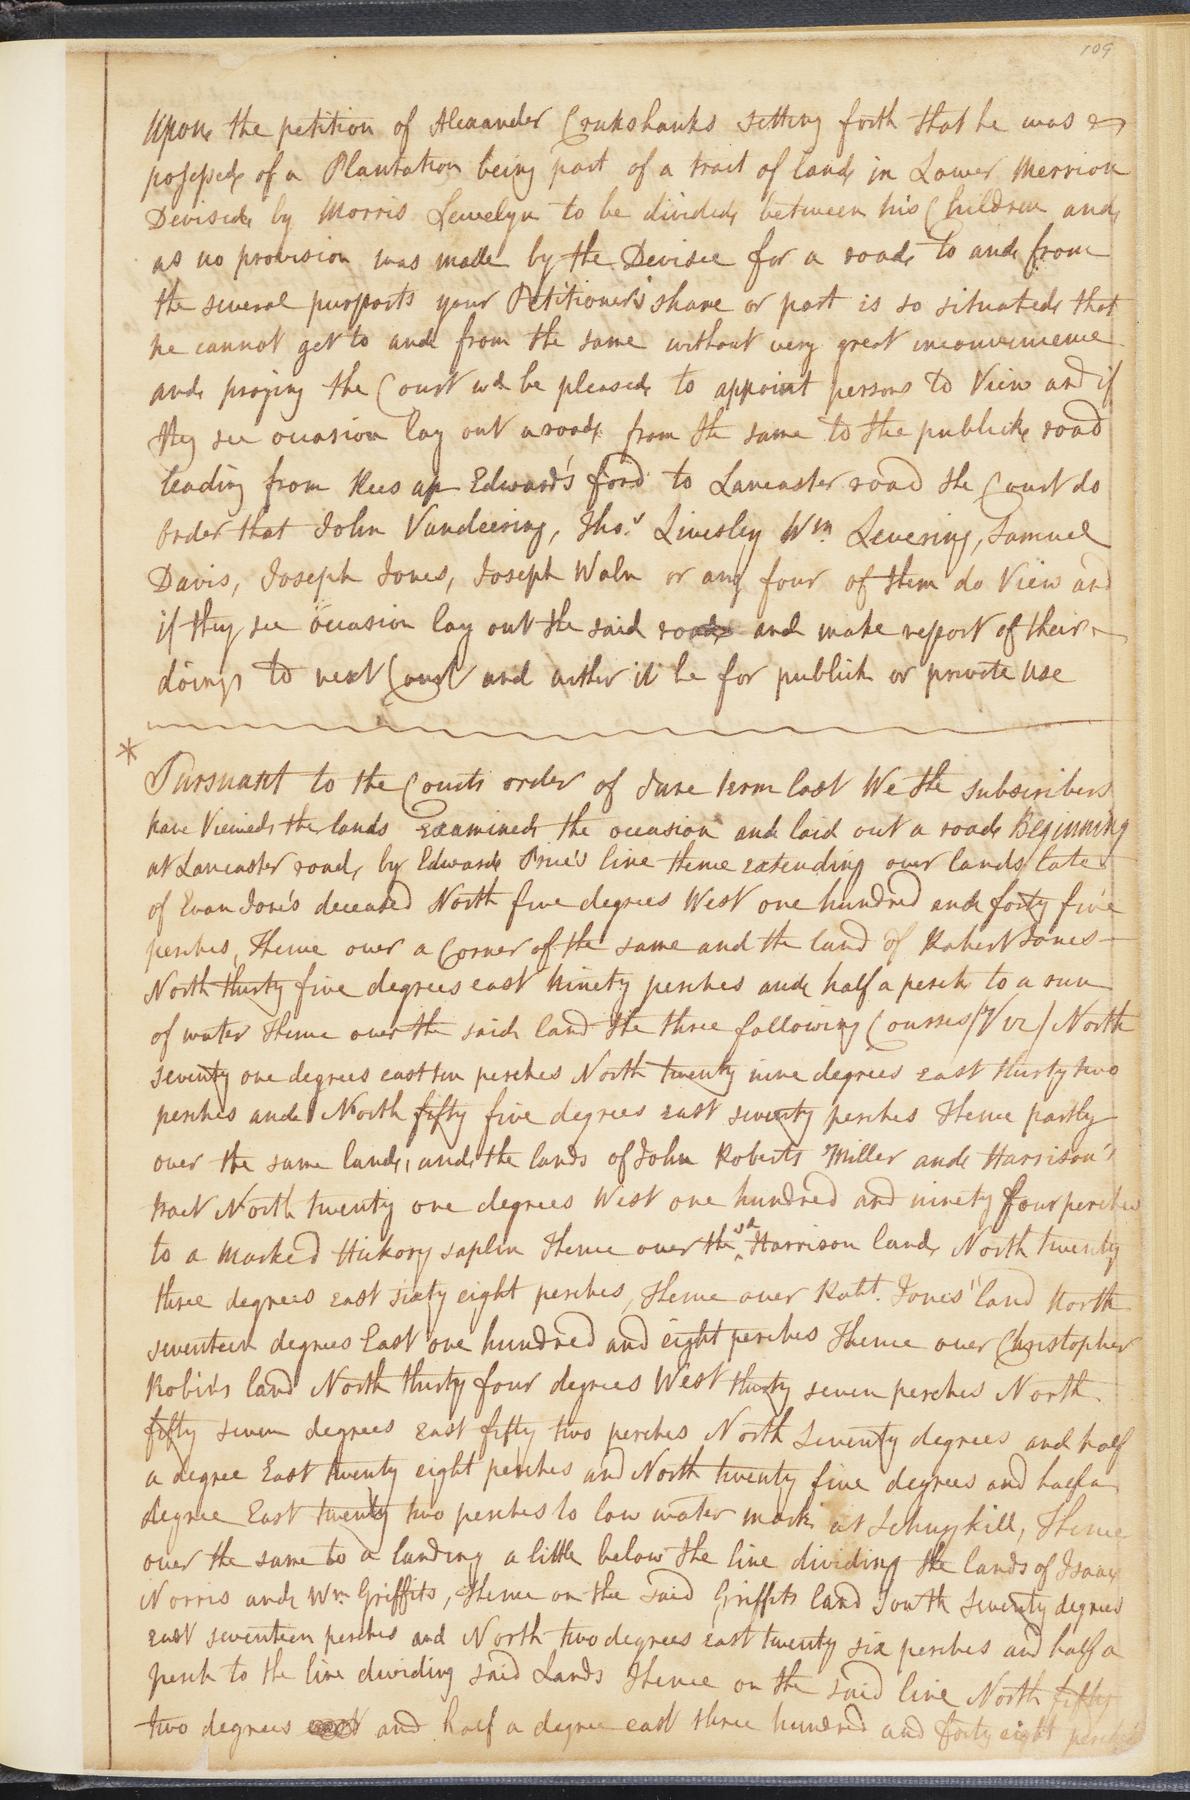 109
Upon the petition of Alexander Crukshanks setting forth that he was
possessed of a Plantation being part of a tract of land in Lower Merrion
Devised by Morris Lewelyn to be divided between his Children and
as no provision was made by the Devisee for a road to and from
the several purparts your Petitioner's share or part is so situated that
he cannot get to and from the same without very great inconvenience
and praying the Court wd be pleased to appoint persons to View and if
they see occasion lay out a road from the same to the publick road
leading from Rees ap Edward's ford to Lancaster road the Court do
order that John Vandeering, Thos. Livesley Wm. Levering, Samuel
Davis, Joseph Jones, Joseph Waln or any four of them do View and
if they see occasion lay out the said road and make report of their
doings to next Court and wither it be for publick or private use
* Pursuant to the Courts order of June term last We the subscribers
have Viewed the lands examined the occasion and laid out a road Beginning
at Lancaster road, by Edward Price's line thence extending over lands late
of Evan Jone's deceased North five degrees West one hundred and forty five
perches, Thence over a Corner of the same and the land of Robert Jones
North thirty five degrees east Ninety perches and half a perch to a run
of water Thence over the said land the three following Courses (Viz) North
seventy one degrees east ten perches North twenty nine degrees east thirty two
perches and North fifty five degrees east seventy perches Thence partly
over the same land, and the lands of John Roberts Miller and Harrison's
tract North twenty one degrees West one hundred and ninety four perches
to a Marked Hickory saplin Thence over the sd Harrison land North twenty
three degrees east sixty eight perches, Thence over Robt. Jones' land North
seventeen degrees East one hundred and eight perches Thence over Christopher
Robins land North thirty four degrees West thirty seven perches North
fifty seven degrees east fifty two perches North Seventy degrees and half
a degree East twenty eight perches and North twenty five degrees and half a
degree East twenty two perches to low water mark at Schuylkill, Thence
over the same to a landing a little below the line dividing the lands of Isaac
Norris and Wm. Griffits, Thence on the said Griffits land South Seventy degrees
east seventeen perches and North two degrees east twenty six perches and half a
perch to the line dividing said Lands Thence on the said line North fifty
two degrees and half a degree east three hundred and forty eight perches